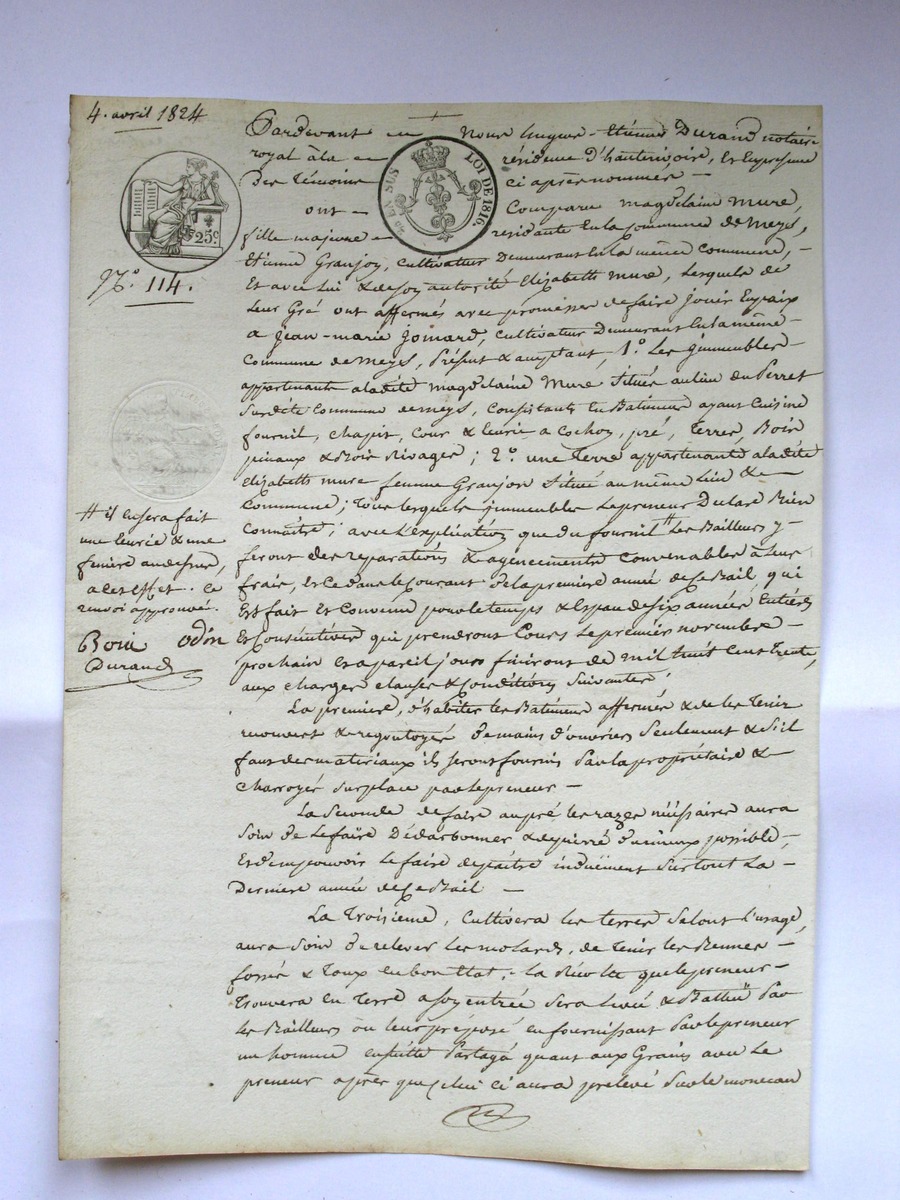 4. avril 1824
25c
N.° 114.
EN SUS
LOI DE 1816.
Pardevant Nous hugues-Etienne Durand notaire
royal à la résidence d'hauterivoire, et En presence
Des témoins ci après nommés
ont Comparu magdelaine mure,
fille majeure résidante En la Commune de meys,
Etienne Granjon, cultivateur Demeurant En la même Commune,
Et avec Lui & de son autorité Elizabeth mure, Lesquels de
Leur Gré ont affermés avec promesse de faire jouir En paix
a jean-marie joinard, cultivateur Demeurant En la même
Commune de meys, présent & acceptant, 1.° Les jmmeubles
appartenants a ladite magdelaine Mure Situés au lieu du Perret
Sur dite Commune de meys, Consistants En Batiments ayant Cuisine
fournil, chapit, Cour & Ecurie a Cochon, pré, Terres, Bois
pinaux & Bois Rivages; 2.° une Terre appartenante a ladite
Elizabeth mure femme Granjon Située au même Lieu &
Commune; Tous lesquels jmmeubles Le preneur Déclare Bien
Connaître; avec L'explication que du fournil # Les Bailleurs y
feront des reparations & agencements Convenables à Leur
frais, Et Ce dans le Courant de la première année de Ce Bail, qui
Est fait Et Convenu pour le temps & Espace de six années Entières
Et Consécutives qui prendront Cours Le premier novembre
prochain Et a pareil jour finiront de mil huit Cent trente,
aux charges clauses & Conditions Suivantes.
# il en sera fait
une Ecurie & une
feniere au dessus,
a cet Effet. Ce
renvoi approuvé.
Odin
Durand
La première, d'habiter les Batiments affermés & de les Tenir
recouvert & regoutoyés de mains d'ouvriers Seulement & S'il
faut des materiaux ils seront fournis Par la propriétaire &
Charroyés Sur place par le preneur
La Seconde de faire au pré les razes nécessaires aura
Soin de le faire Dédarbonner & depierré du mieux possible,
Et de ne pouvoir Le faire depaitre induëment Surtout La
Derniere année de Ce Bail
La Troisieme, Cultivera les terres Selont l'usage,
aura Soin de relever les molards, de Tenir les
fossés & Toux en bon Etat. La Récolte que le preneur
Trouvera En Terre a son entrée Sera Levée & Battue Par
les Bailleurs ou leur préposé en fournissant Par le preneur
un homme Ensuitte Partagé quant aux Grains avec Le
preneur après que celui ci aura prélevé Sur le monceau